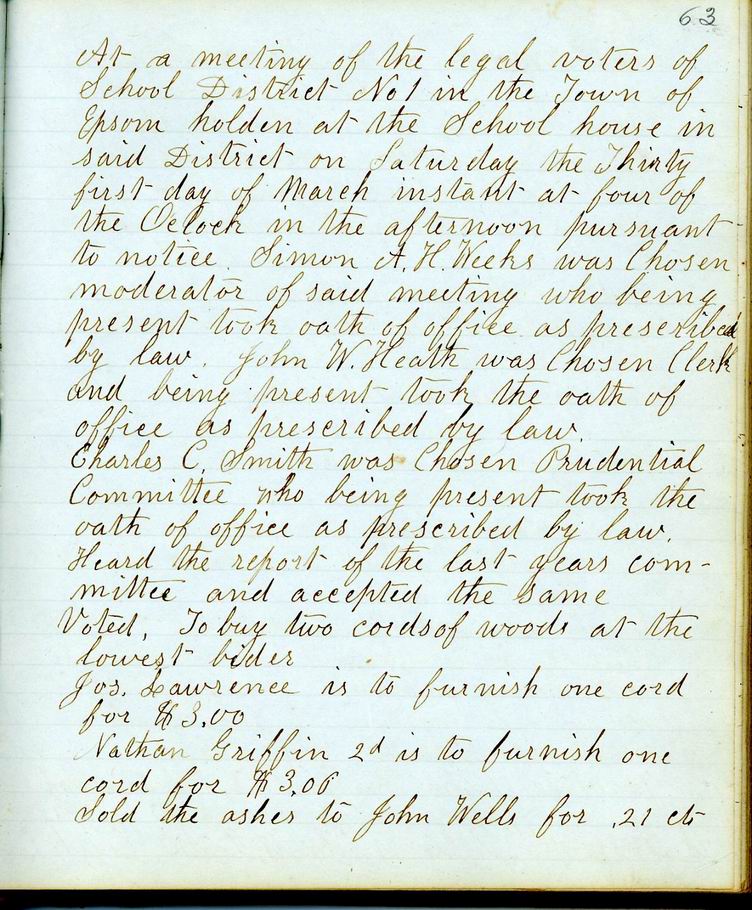 63
At a meeting of the legal voters of
School District No 1 in the Town of
Epsom holden at the School house in
said District on Saturday the Thirty
first day of March instant at four of
the Oclock in the afternoon pursuant
to notice. Simon A. H. Weeks was Chosen
moderator of said meeting who being
present took oath of office as prescribed
by law. John W. Heath was Chosen Clerk
and being present took the oath of
office as prescribed by law.
Charles C. Smith was Chosen Prudential
Committee who being present took the
oath of office as prescribed by law.
Heard the report of the last years com-
mittee and accepted the same
Voted, To buy two cords of woods at the
lowest bider
Jos. Lawrence is to furnish one cord
for $3.00
Nathan Griffin 2d is to furnish one
cord for $3.00
Sold the ashes to John Wells for .21 cts